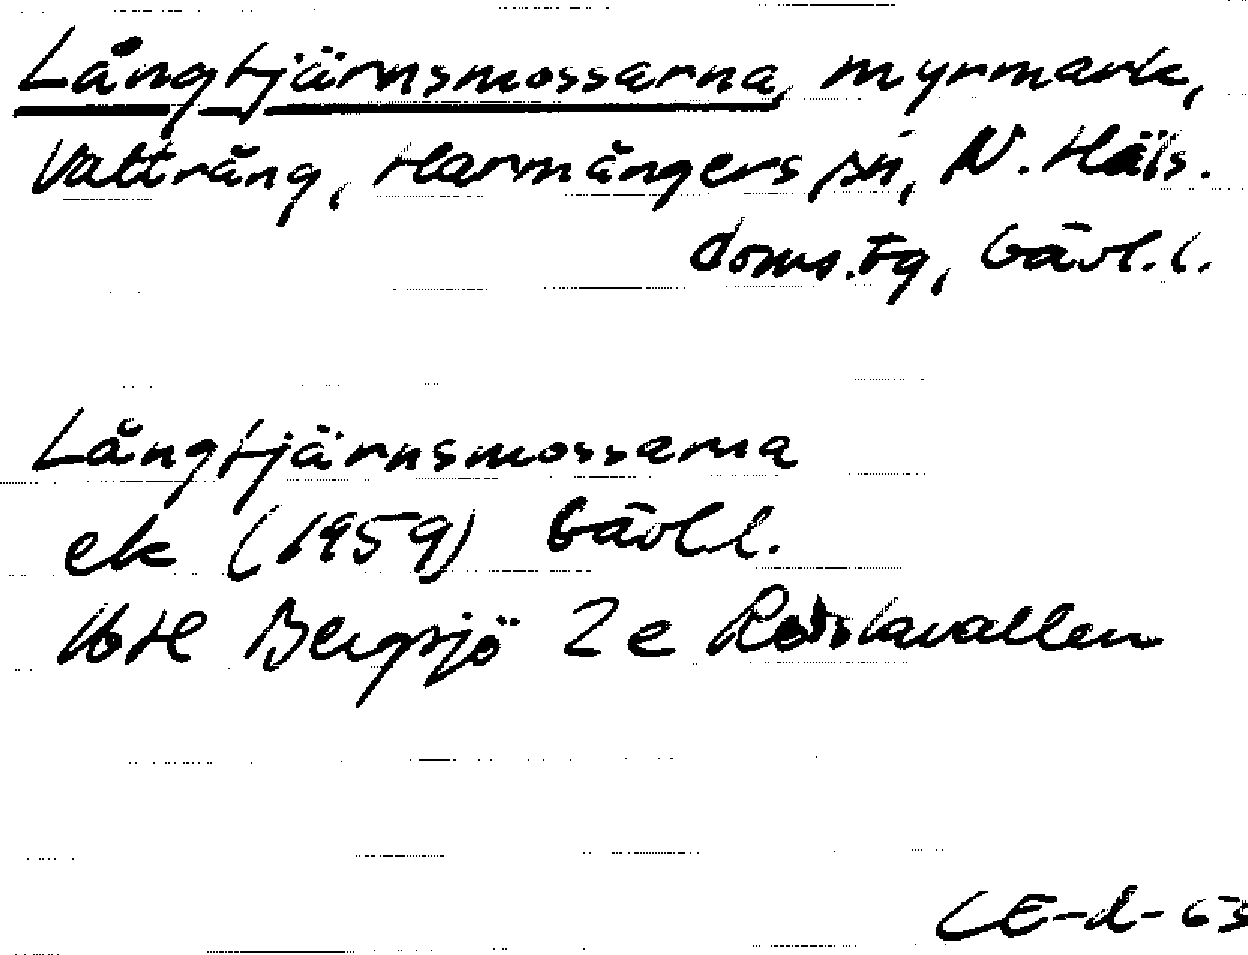 Långtjärnsmossarna, myrmark,
Vattrång, Harmångers sn, N. Häls.
doms.tg, Gävl.l.
Långtjärnsmossarna
ek (1959) Gävl.l.
16H Bergsjö 2e
CE-d-63